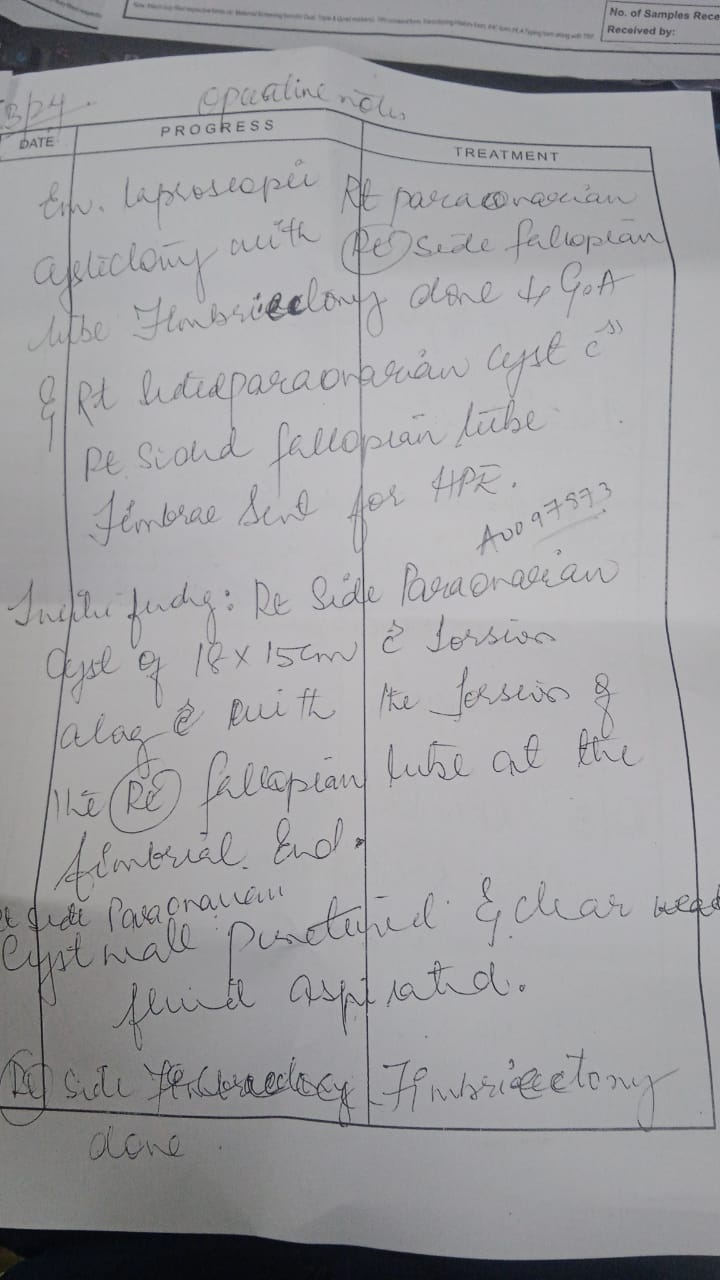 No. of Samples Rece
Received by:
3/24. Operative notes
DATE PROGRESS TREATMENT
Em. laproscopic Rt paraovarian
cysticlomy with Rt side fallopian
tube Fimbriectomy done ↓ G.A
& Rt sided paraovarian cyst c̄
Rt sided fallopian tube
Fimbrae Sent for HPE.
A0097573
finding: Rt Side Paraovarian
Cyst of 18 x 15cm c̄ torsion
alog c̄ with the torsion of
the Rt fallopian tube at the
fimbrial End.
Rt side Paraovarian
Cyst wall punctured & clear
fluid aspirated.
Rt side Fimbriectomy
done